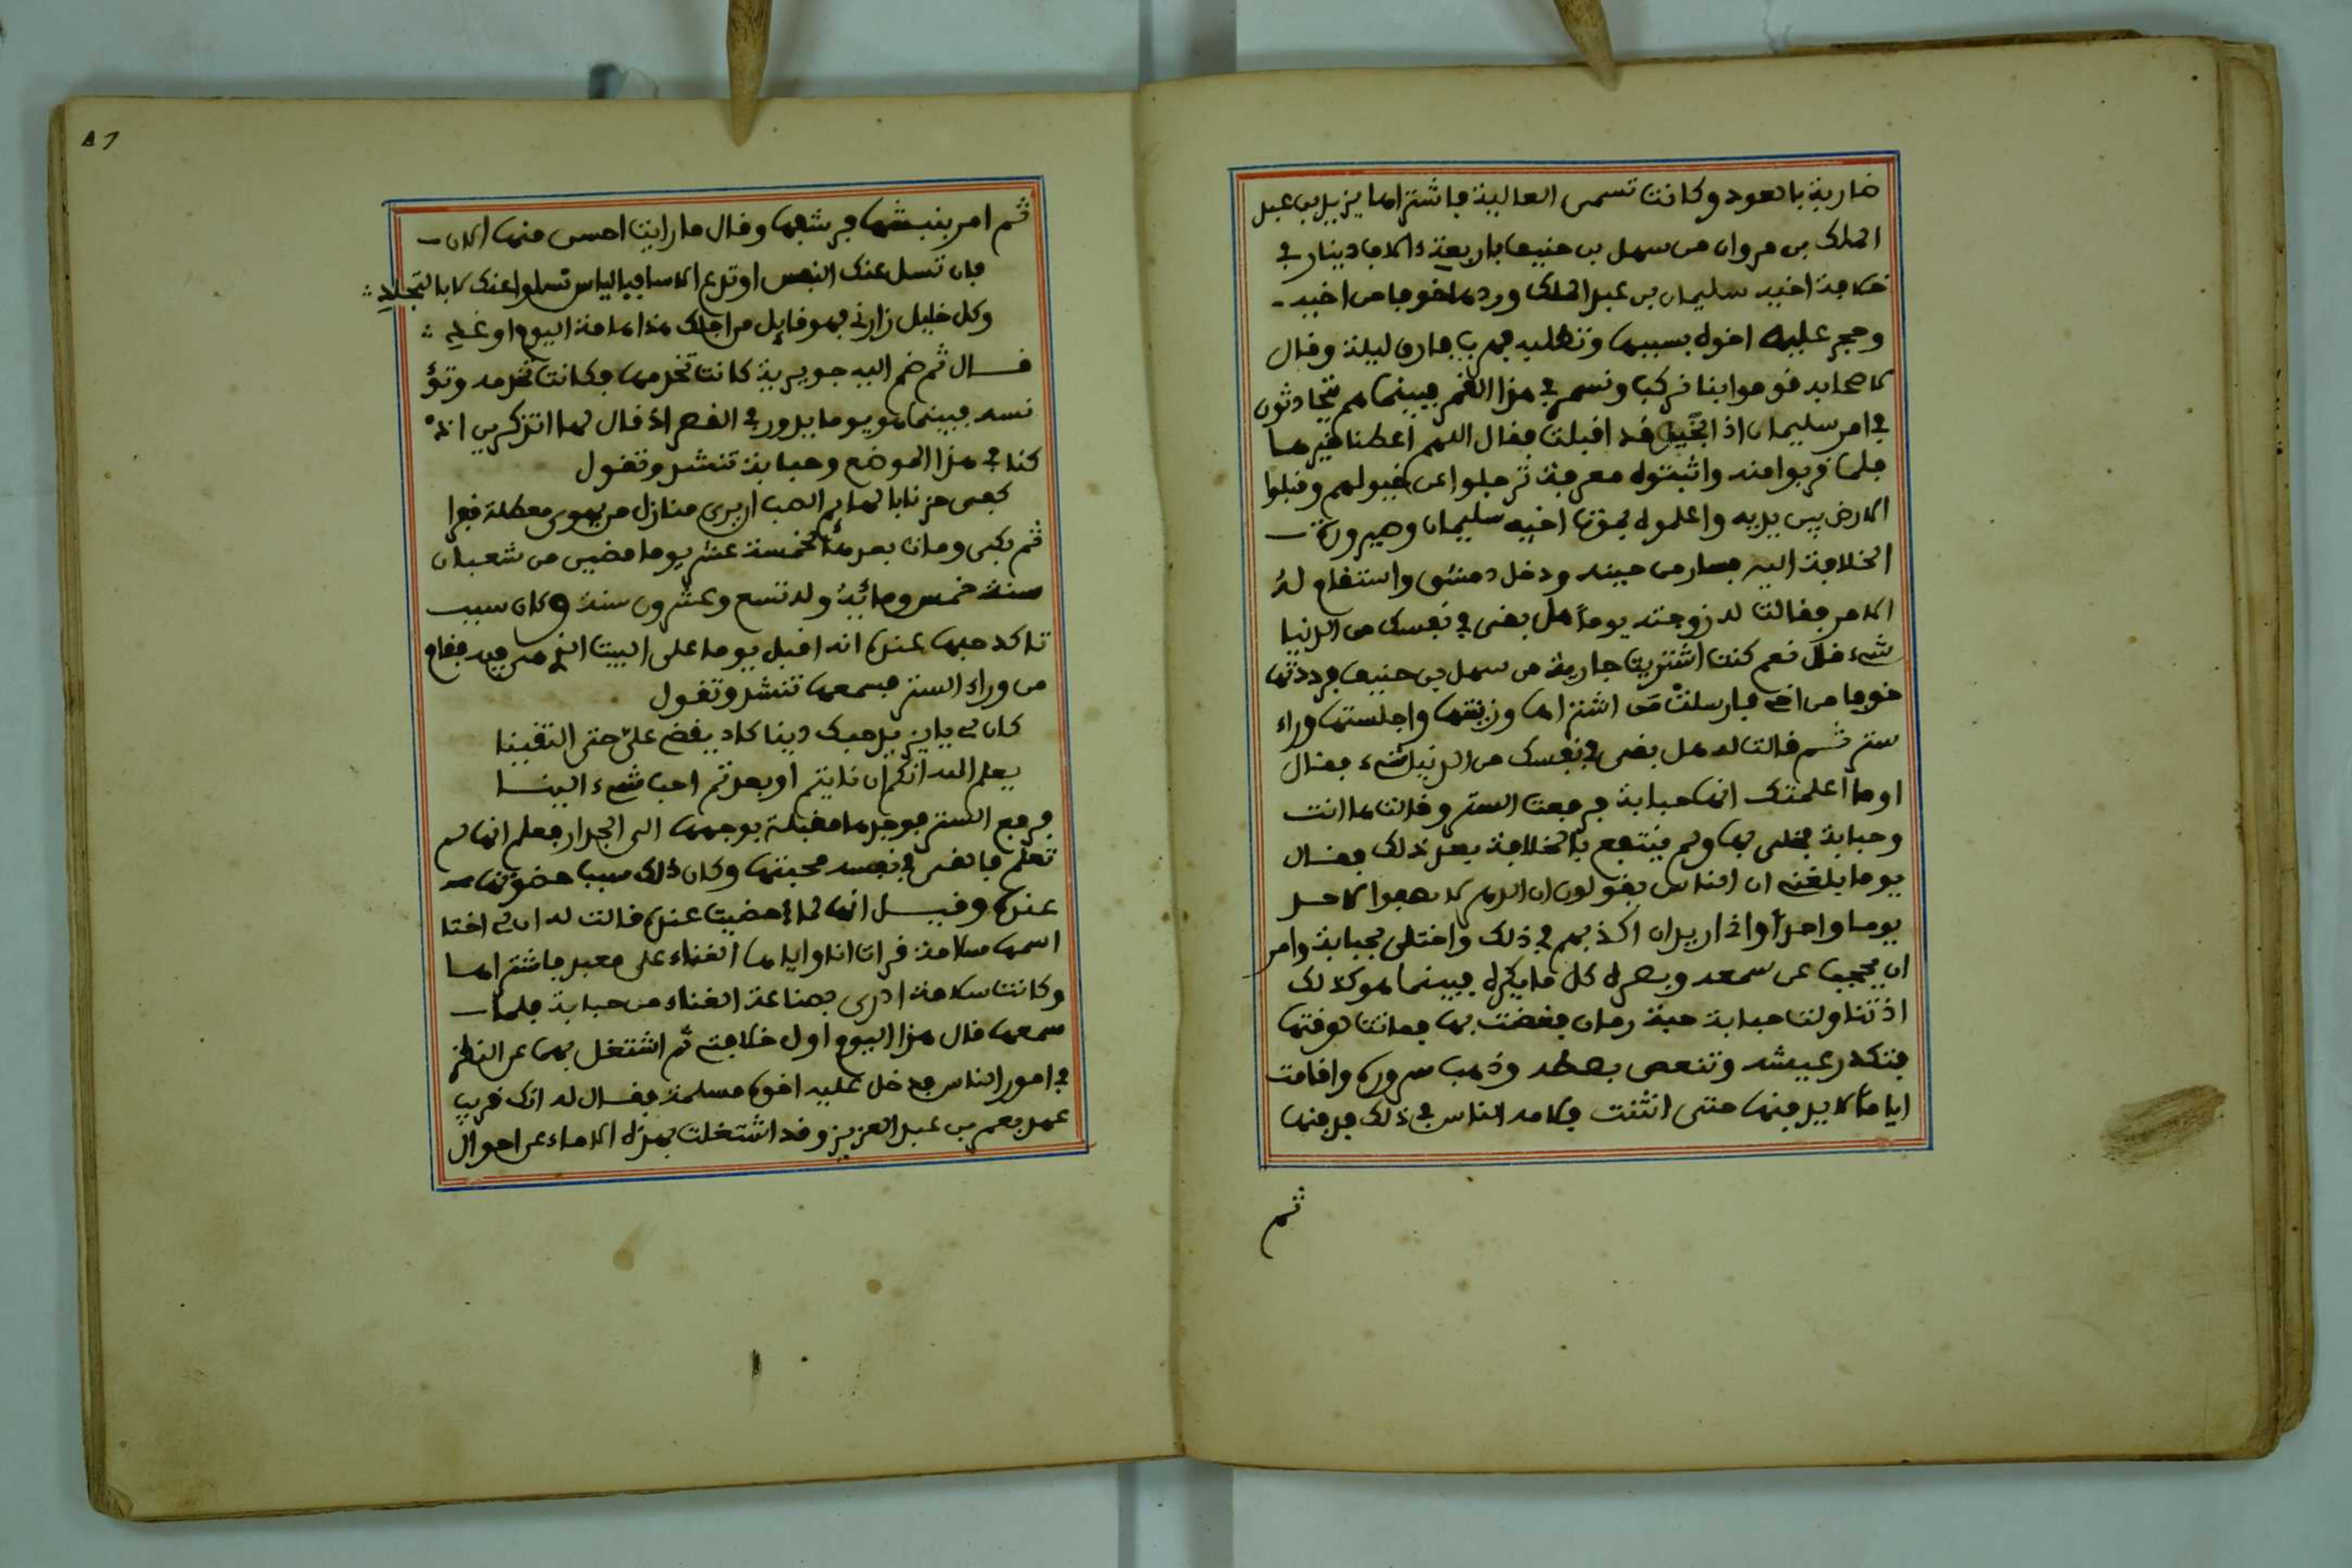 ضاربة بالعود وكانت تسمى العالية فاشتراها يزيد بن عبد
الملك بن مروان من سهل بن حنيف باربعة ءالاف دينار في
خلافة اخيه سليمان بن عبد الملك وردها خوفا من اخيه
وحجر عليه اخوه بسببها وتطلبه فهرب فارق ليلة وقال
لاصحابه قوموا بنا نركب ونسمر في هذا القمر فبينما هم يتحادثون
في امر سليمان اذا الخيل قد اقبلت فقال اللهم اعطنا خيرها
فلما قربوا منه واثبتوه معرفة ترجلوا عن خيولهم وقبلوا
الارض بين يديه واعلموه بموت اخيه سليمان وصيرورة
الخلافة اليه فسار من حينه ودخل دمشق واستقام له
الامر فقالت له زوجته يوما هل بقى في نفسك من الدنيا
شيء قال نعم كنت اشتريت جارية من سهل بن حنيف فرددتها
خوفا من اخي فارسلت من اشتراها وزينتها واجلستها وراء
ستر ثم قالت له هل بقى في نفسك من الدنيا شيء فقال
اوما اعلمتك انها حبابة فرفعت الستر وقالت ها انت
وحبابة فخلى بها ولم ينتفع بالخلافة بعد ذلك فقال
يوما بلغني ان الناس يقولون ان الدهر لا يصفوا لاحد
يوما واحدا واني اريد ان اكذبهم في ذلك واختلى بحبابة وامر
ان يحجب عن سمعه وبصره كل ما يكره فبينما هو كذلك
اذ تناولت حبابة حبة رمان فغصت بها فماتت لوقتها
فتكدر عيشه وتنغص بصطه وذهب سروره واقامت
اياما لا يدفنها حتى انثنت فلامه الناس في ذلك فدفنها
ثم
ثم امر بنبشها فنبشها وقال ما رايت احسن منها الان
فان تسل عنك النفس او تدع الاسا فبالياس تسلوا عنك لا بالتجلد
وكل خليل زارني فهو قايل من اجلك هذا هامة اليوم او غد
قال ثم ضم اليه جويرية كانت تخدمها فكانت تخدمه وتؤ
نسه فبينما هو يوما يدور في القصر اذ قال لها اتذكرين اذ
كنا في هذا الموضع وحبابة تنشد وتقول
كفى حزنا بالهايم الصب ان يرى منازل من يهوى معطلة قفرا
ثم بكى ومات بعدها لخمسة عشر يوما مضين من شعبان
سنة خمس ومائية وله تسع وعشرون سنة وكان سبب
تاكد حبها عنده انه اقبل يوما على البيت الذي هي فيه فقام
من وراء الستر فسمعها تنشد وتقول
كان لي يا يزيد حبك دينا كاد يقضي علي حتى التقينا
يعلم الله انكم ان نايتم او بعدتم احب شيء الينا
فرفع الستر فوجدها مقبلة بوجهها الى الجدار فعلم انها لم
تعلم به فالقى في نفسه محبتها وكان ذلك سبب حضوتها
عنده وقيل انها لما حضيت عنده قالت له ان لي اختا
اسمها سلامة قرات انا واياها الغناء على معبد فاشتراها
وكانت سلامة ادرى بصناعة الغناء من حبابة فلما
سمعها قال هذا اليوم اول خلافتي ثم اشتغل بهما عن النظر
في امور الناس فدخل عليه اخوه مسلمة فقال له انك قريب
عهد بعمر بن عبد العزيز وقد اشتغلت بهذه الاماء عن احوال